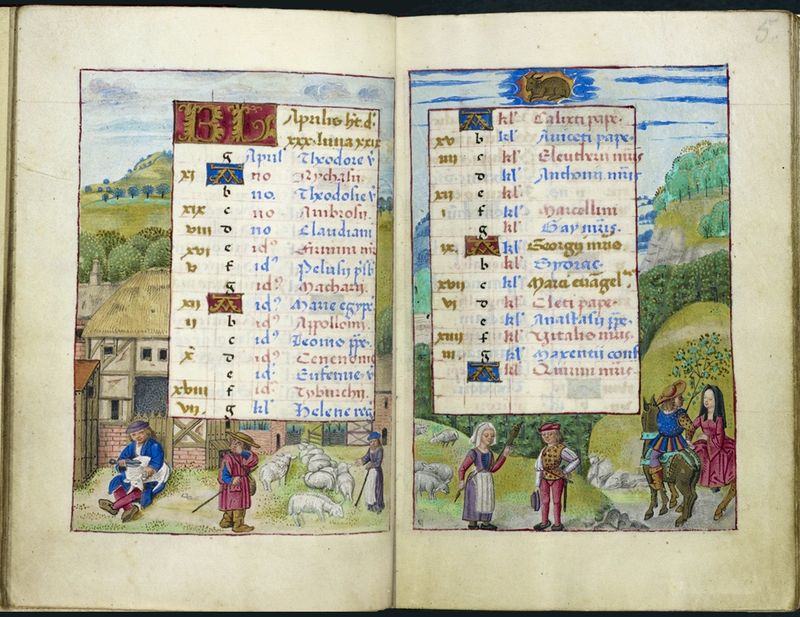 KL Aprilis ht d.
xxx. luna xxix
g April Theodore v
xi A no
b no. Theodosie v
xix c no Ambrosii.
viii d no Claudiani
xvi e id9
v f id9
g id9 Macharii.
xii A id9 Marie egyp
ii b id9 Appolonii.
c id9 Leonis ppe.
x d id9
e id9 Eufemie v
xviii f id Tyburcii.
vii. g kl Helene reg
5
A kl Calixti pape.
xv b kl Aniceti pape.
iiii c kl Eleutherii mris
d kl Anthonii mris
xii e kl
i f kl Marcellini
g kl Gay mris.
ix A kl Georgii mris
b kl
xvii c kl Marci euangel
vi d kl Cleti pape.
e kl Anastasii ppe.
xiiii f kl Vitalis mris.
iii g kl Maxencii conf
A kl Quirini mris.